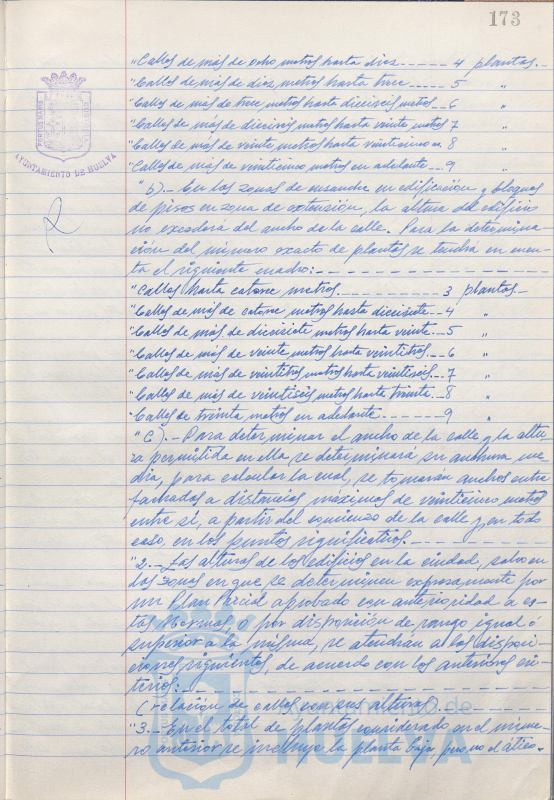 173
"Calles de más de ocho metros hasta diez ------ 4 plantas.-
"Calles de más de diez metros hasta trece ----- 5 "
"Calles de más de trece metros hasta dieciseis metros - 6 "
"Calles de más de dieciseis metros hasta veinte metros 7 "
"Calles de más de veinte metros hasta veinticinco m. 8 "
"Calles de más de veinticinco metros en adelante -- 9 "
AYUNTAMIENTO DE HUELVA
"b).- En las zonas de ensanche en edificación y bloques
de pisos en zona de extensión, la altura del edificio
no excederá del ancho de la calle. Para la determina-
ción del número exacto de plantas se tendrá en cuen-
ta el siguiente cuadro:-
"Calles hasta catorce metros ---------- 3 plantas-
"Calles de más de catorce metros hasta diecisiete -- 4 "
"Calles de más de diecisiete metros hasta veinte -- 5 "
"Calles de más de veinte metros hasta veintitres -- 6 "
"Calles de más de veintitres metros hasta veintiseis - 7 "
"Calles de más de veintiseis metros hasta treinta - 8 "
"Calles de treinta metros en adelante ------ 9 "
"c).- Para determinar el ancho de la calle y la altu-
ra permitida en ella se determinará su anchura me-
dia, para calcular la cual, se tomarán anchos entre
fachadas a distancias máximas de veinticinco metros
entre sí, a partir del comienzo de la calle y en todo
caso, en los puntos significativos.
"2.- Las alturas de los edificios en la ciudad, salvo en
las zonas en que se determinen expresamente por
un Plan Parcial aprobado con anterioridad a es-
tas Normas, o por disposición de rango igual ó
superior a la misma, se atendrán a las disposi-
ciones siguientes, de acuerdo con los anteriores cri-
terios:
(relación de calles con sus alturas)
"3.- En el total de plantas considerado en el núme-
ro anterior se incluye la planta baja, pero no el ático.-
HUELVA